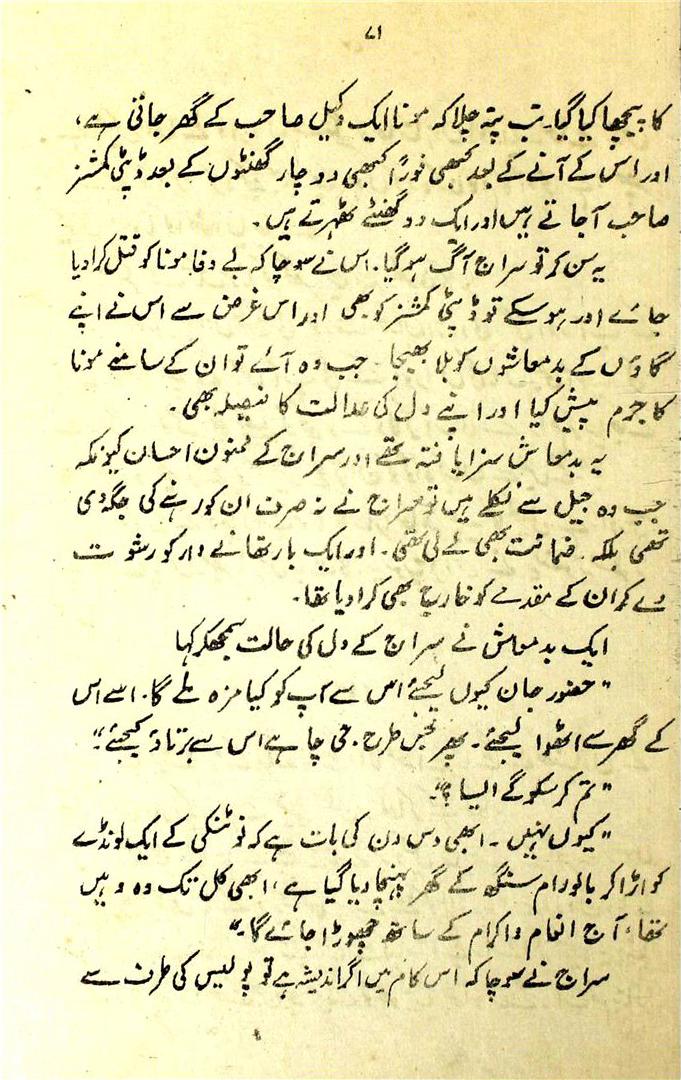 ۷۱
کا پیچھا کیا گیا۔ تب پتہ چلا کہ مونا ایک وکیل صاحب کے گھر جاتی ہے،
اور اس کے آنے کے بعد کبھی فوراً کبھی دو چار گھنٹوں کے بعد ڈپٹی کمشنر
صاحب آجاتے ہیں اور ایک دو گھنٹے ٹھہرتے ہیں۔
یہ سن کر تو سراج آگ ہو گیا۔ اس نے سوچا کہ بے وفا مونا کو قتل کرا دیا
جائے اور ہو سکے تو ڈپٹی کمشنر کو بھی اور اس غرض سے اس نے اپنے
گاؤں کے بدمعاشوں کو بلا بھیجا۔ جب وہ آئے تو ان کے سامنے مونا
کا جرم پیش کیا اور اپنے دل کی عدالت کا فیصلہ بھی۔
یہ بدمعاش سزا یافتہ تھے اور سراج کے ممنون احسان کیونکہ
جب وہ جیل سے نکلے ہیں تو سراج نے نہ صرف ان کو رہنے کی جگہ دی
تھی بلکہ ضمانت بھی لے لی تھی۔ اور ایک بار تھانے دار کو رشوت
دے کر ان کے مقدمے کو خارج بھی کرا دیا تھا۔
ایک بدمعاش نے سراج کے دل کی حالت سمجھ کر کہا
"حضور جان کیوں لیجئے اس سے آپ کو کیا مزہ ملے گا۔ اسے اس
کے گھر سے اٹھوا لیجئے۔ پھر جس طرح جی چاہے اس سے برتاؤ کیجئے۔"
"تم کر سکو گے ایسا؟"
"کیوں نہیں۔ ابھی دس دن کی بات ہے کہ نوٹنکی کے ایک لونڈے
کو اڑا کر بابو رام سنگھ کے گھر پہنچا دیا گیا ہے، ابھی کل تک وہ وہیں
تھا، آج انعام و اکرام کے ساتھ چھوڑا جائے گا۔"
سراج نے سوچا کہ اس کام میں اگر اندیشہ ہے تو پولیس کی طرف سے